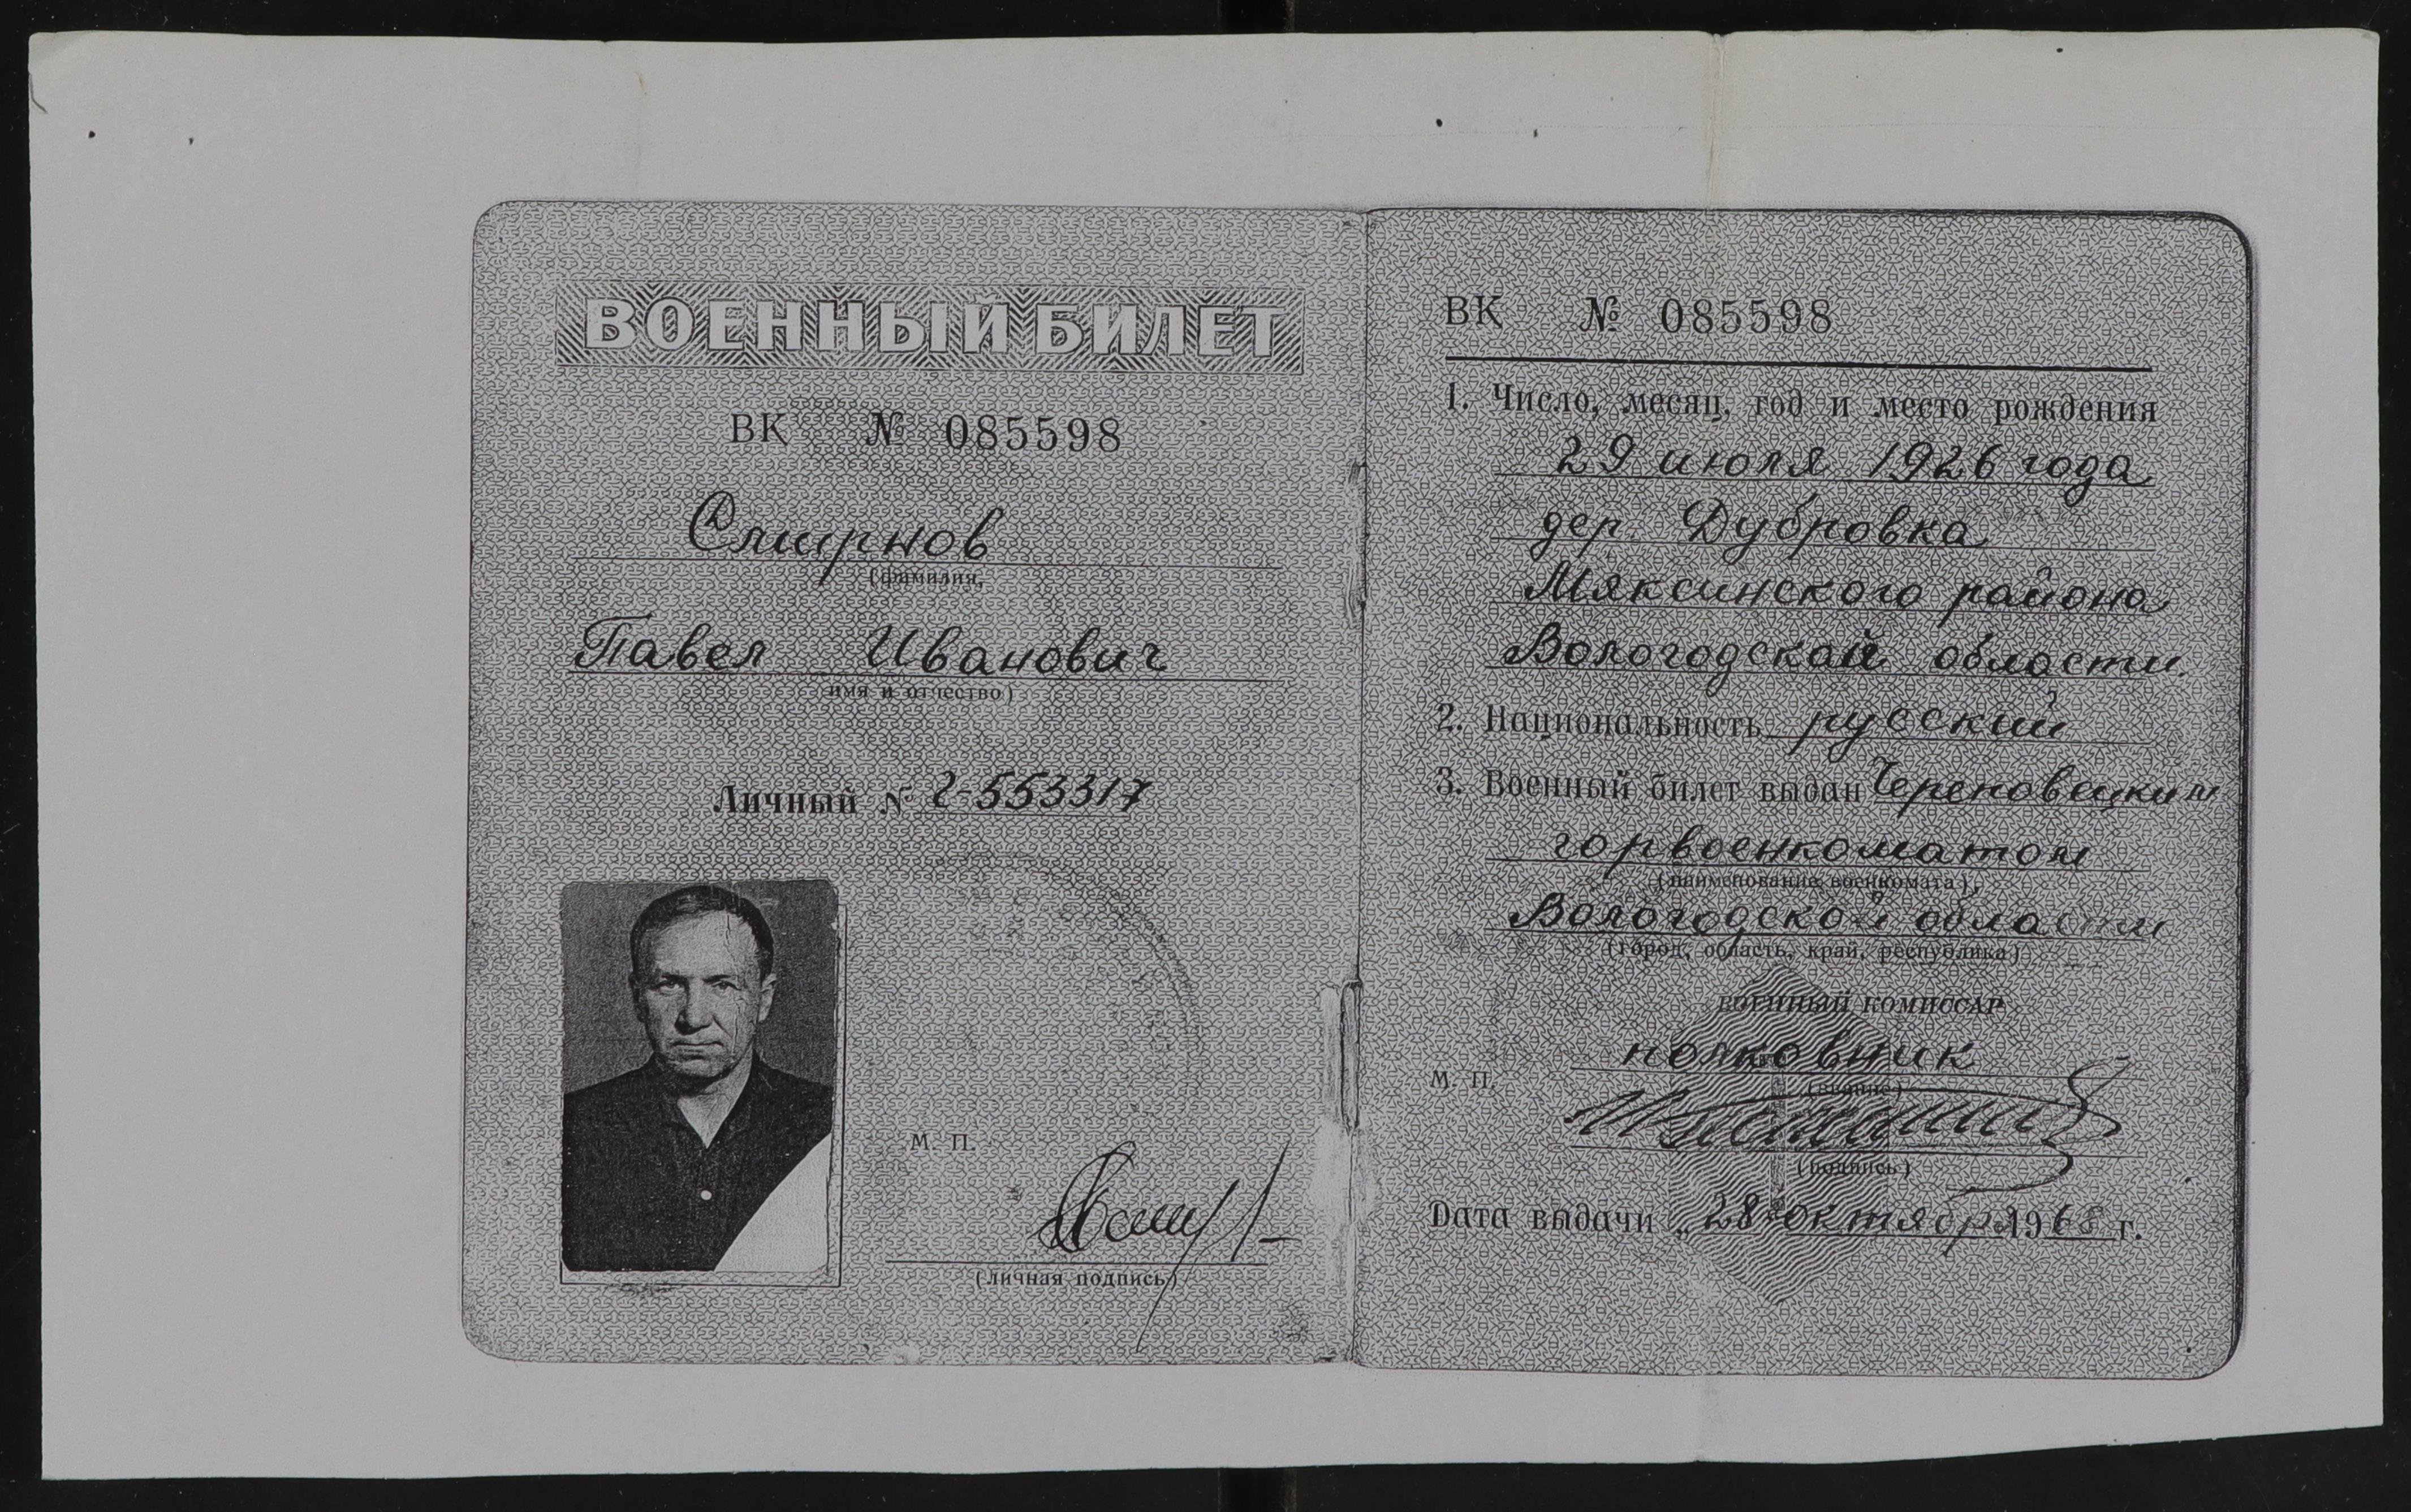 ВОЕННЫЙ БИЛЕТ
ВК № 085598
Смирнов
(фамилия,
Павел Иванович
имя и отчество)
Личный № Г-553317
М. П.
(личная подпись)
ВК № 085598
1. Число, месяц, год и место рождения
29 июля 1926 года
дер. Дубровка
Мяксинского района
Вологодской области.
2. Национальность русский
3. Военный билет выдан Череповецким
горвоенкоматом
(наименование военкомата),
Вологодской области
(город, область, край, республика)
ВОЕННЫЙ КОМИССАР
полковник
М. П.
(звание)
(подпись)
Дата выдачи „ 28 " октября 1968 г.